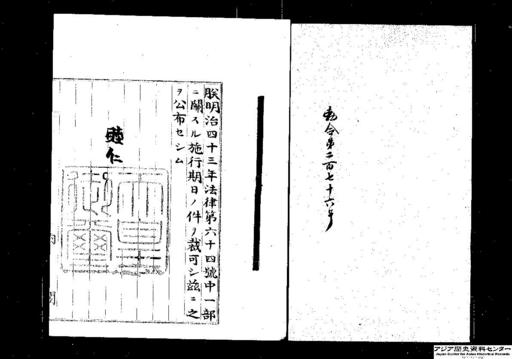 勅令第二百七十六号
朕明治四十三年法律第六十四號中一部
ニ關スル施行期日ノ件ヲ裁可シ茲ニ之
ヲ公布セシム
睦仁
内閣
アジア歴史資料センター
Japan Center for Asian Historical Records